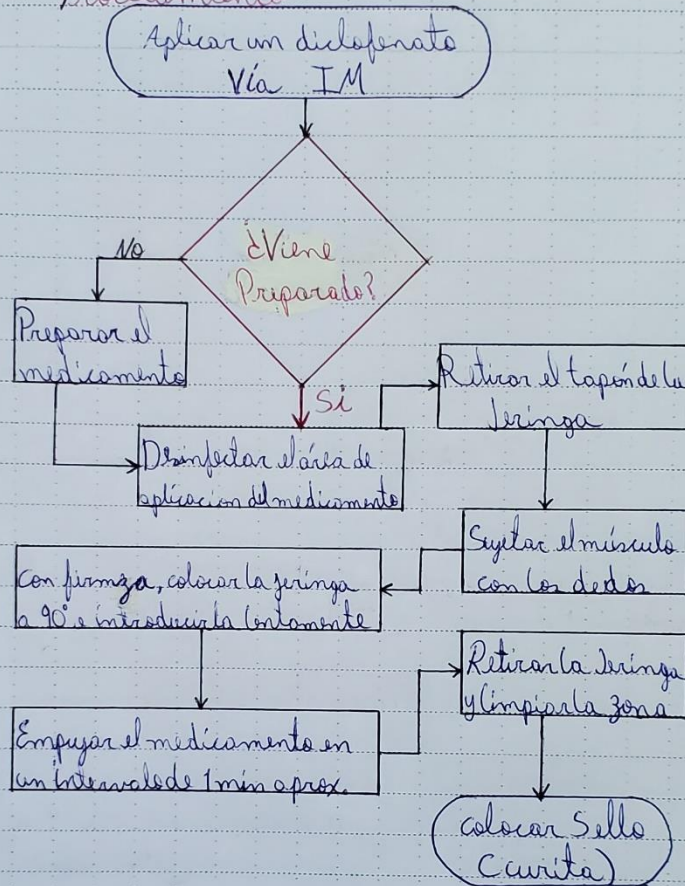 Aplicar un diclofenato
Vía IM
¿Viene
Preparado?
No
Preparar el
medicamento
Si
Desinfectar el área de
aplicacion del medicamento
Retirar el tapón de la
Jeringa
Sujetar el músculo
con los dedos
Con firmeza, colocar la jeringa
a 90° e introducirla lentamente
Empujar el medicamento en
un intervalo de 1 min aprox.
Retirar la Jeringa
y limpiar la zona
Colocar Sello
(curita)